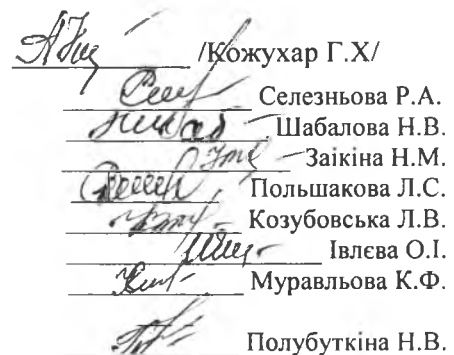 /Кожухар Г.Х/
Селезньова Р.А.
Шабалова Н.В.
Заікіна Н.М.
Польшакова Л.С.
Козубовська Л.В.
Івлєва О.І.
Муравльова К.Ф.
Полубуткіна Н.В.